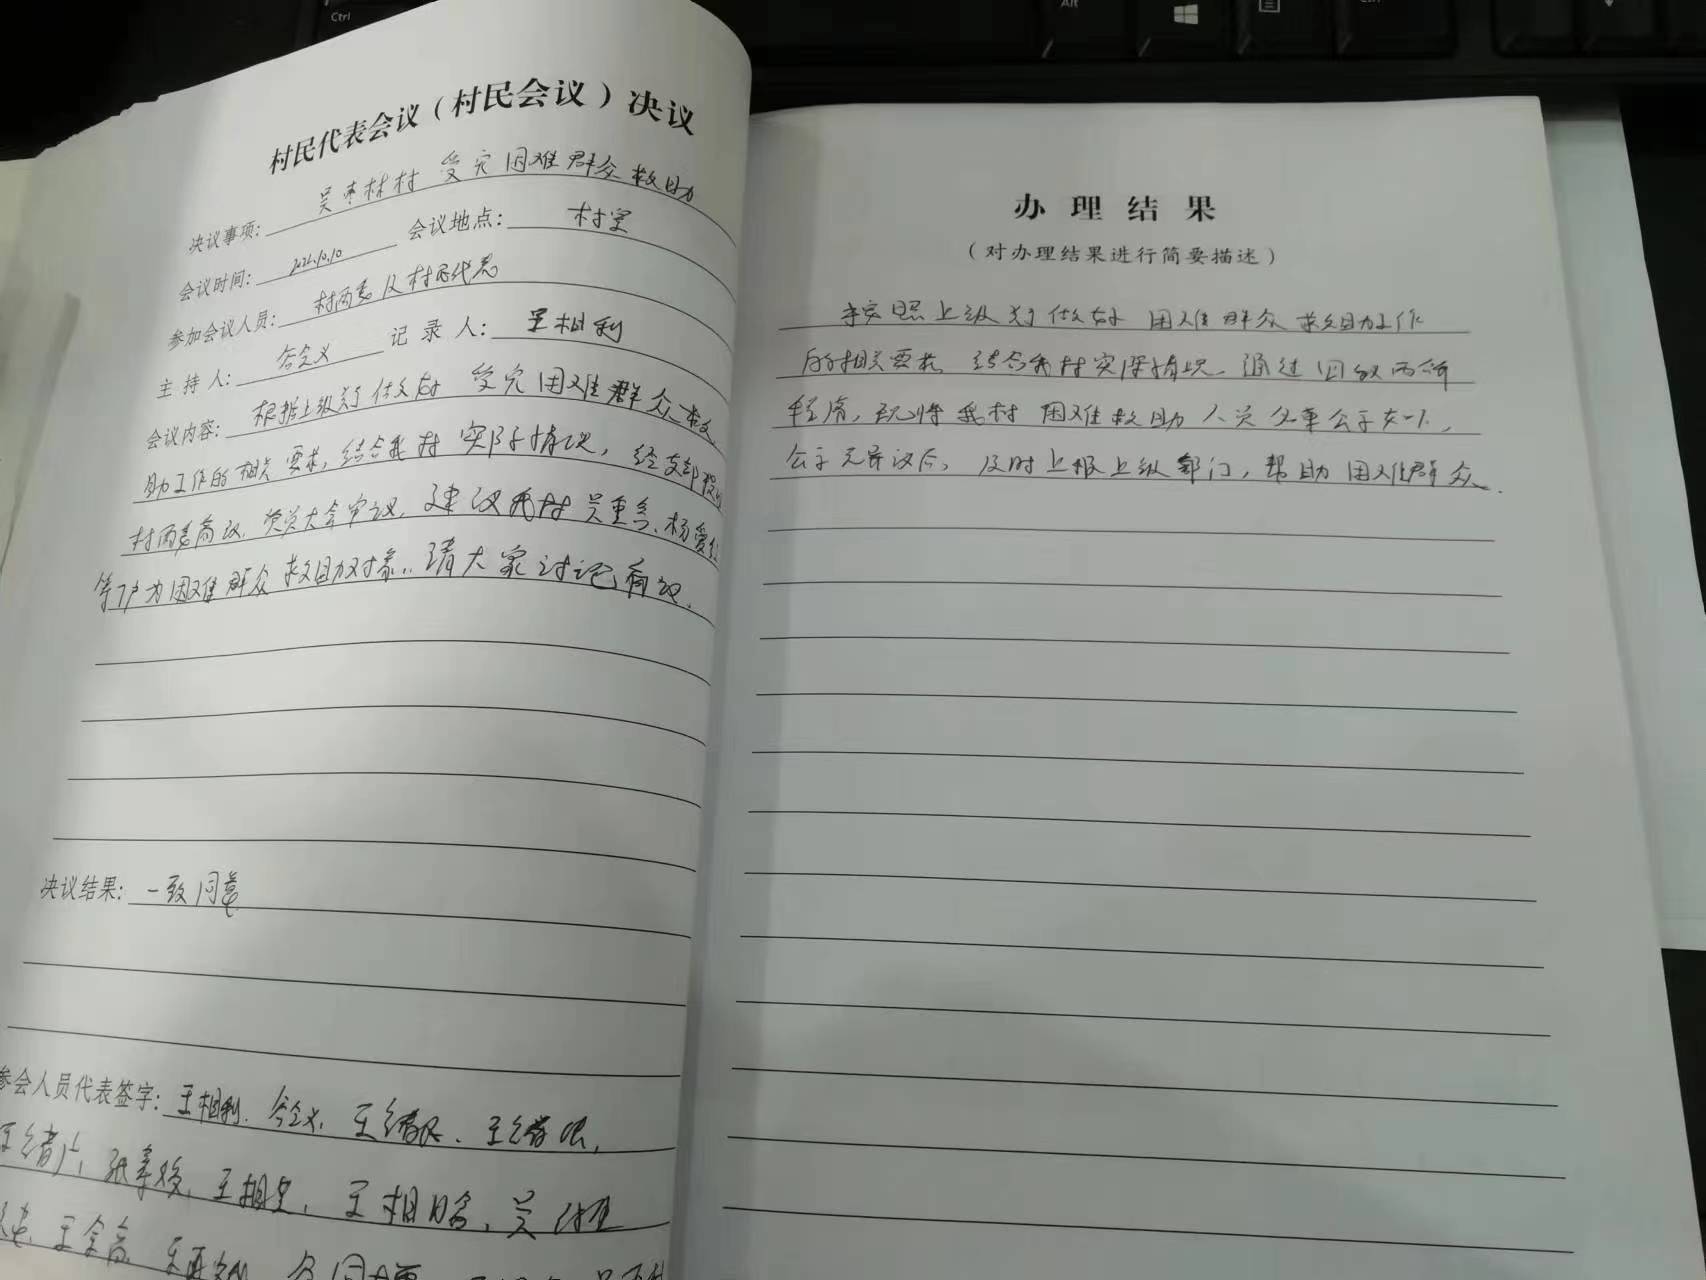 村民代表会议（村民会议）决议
决议事项：吴枣林村 受灾困难群众救助
会议时间：10.10 会议地点：村室
参加会议人员：村两委及村民代表
主持人：记录人：王相利
会议内容：根据上级关于做好 受灾困难群众救
助工作的相关要求，结合我村实际情况，经支部提议
村两委商议，党员大会审议，建议我村吴重、杨爱
等7户为困难群众救助对象，请大家讨论商议。
决议结果：一致同意
参会人员代表签字：王相利、王
王 张 王相 王相 吴
王 王
办理结果
（对办理结果进行简要描述）
按照上级关于做好 困难群众救助工作
的相关要求，结合我村实际情况，通过四议两公开
程序，现将我村困难救助人员名单公示如下，
公示无异议后，及时上报上级部门，帮助困难群众。
Ctrl
Alt